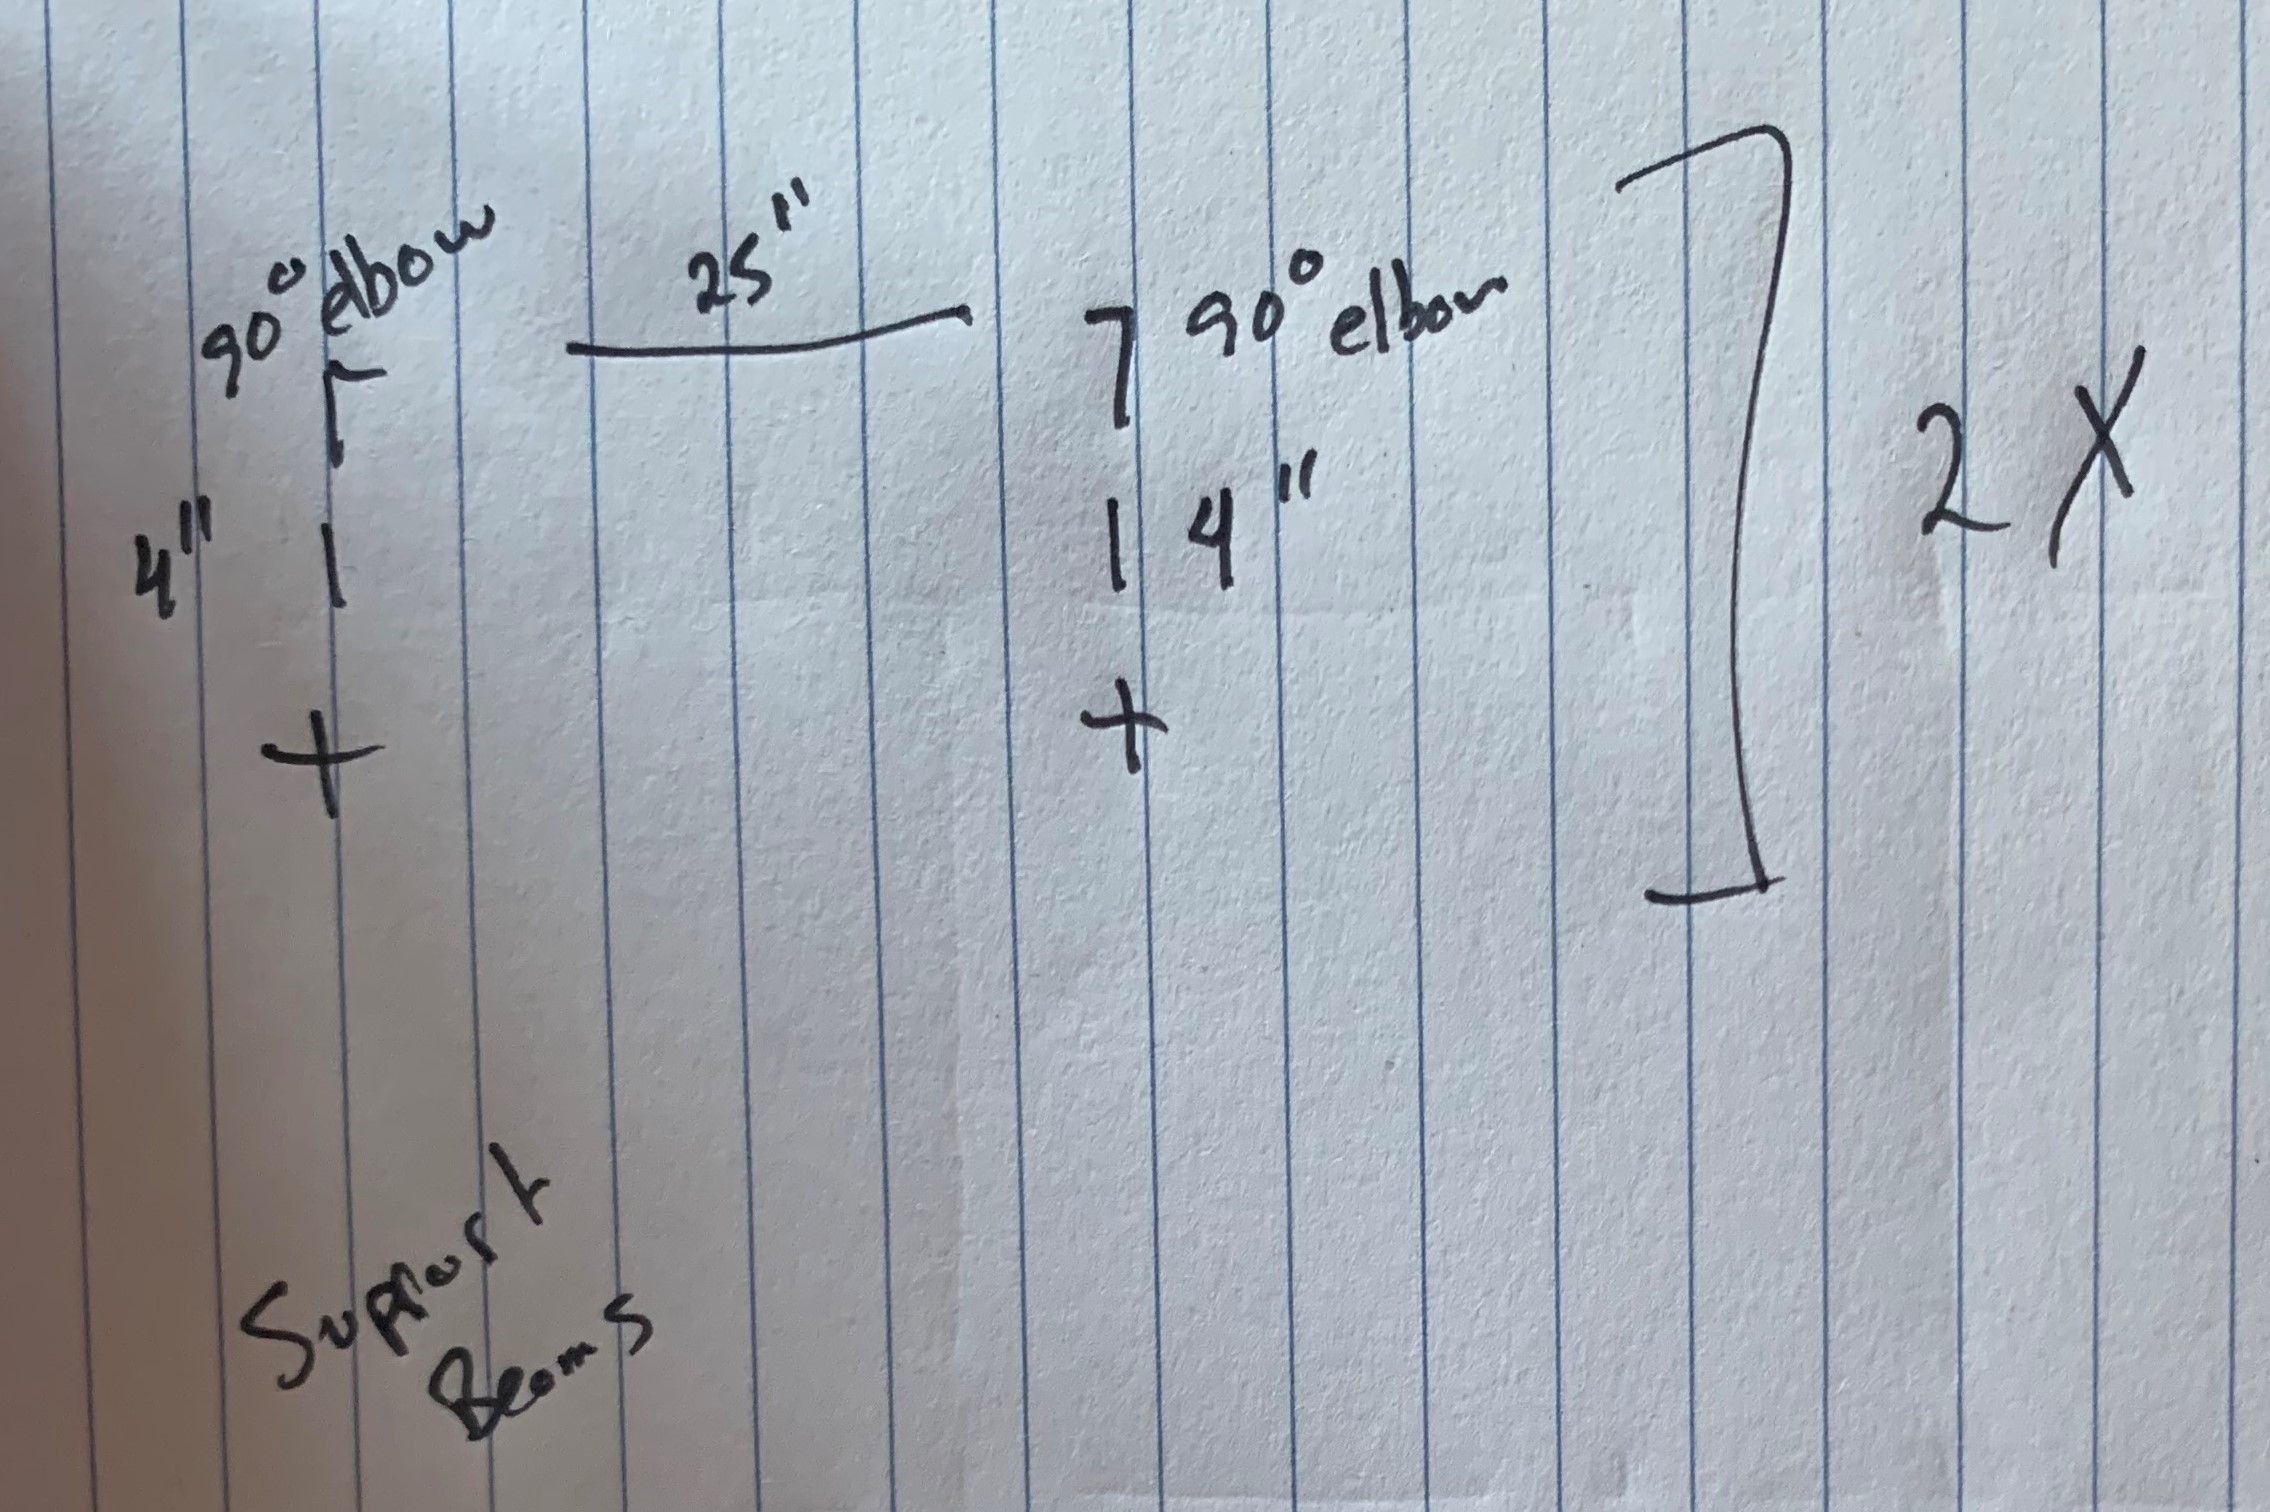 90° elbow
25"
90° elbow
4"
4"
2 X
Support
Beams